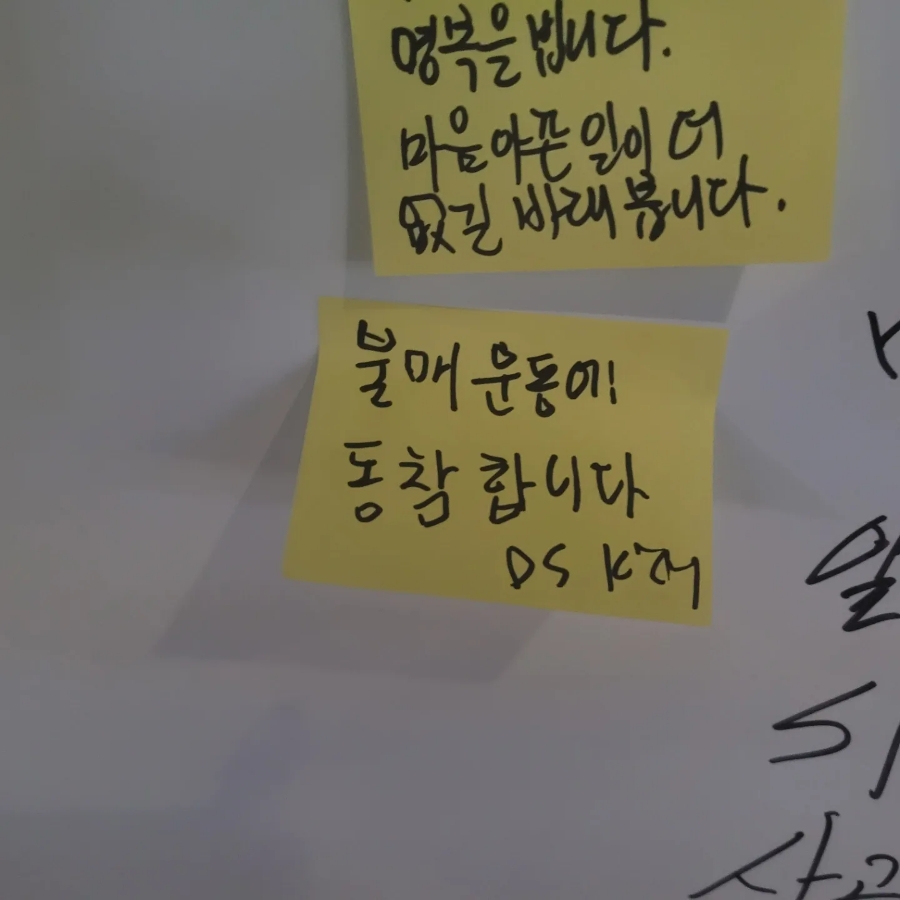 명복을 빕니다.
마음 아픈 일이 더
없길 바래 봅니다.
불매 운동에
동참 합니다
DS